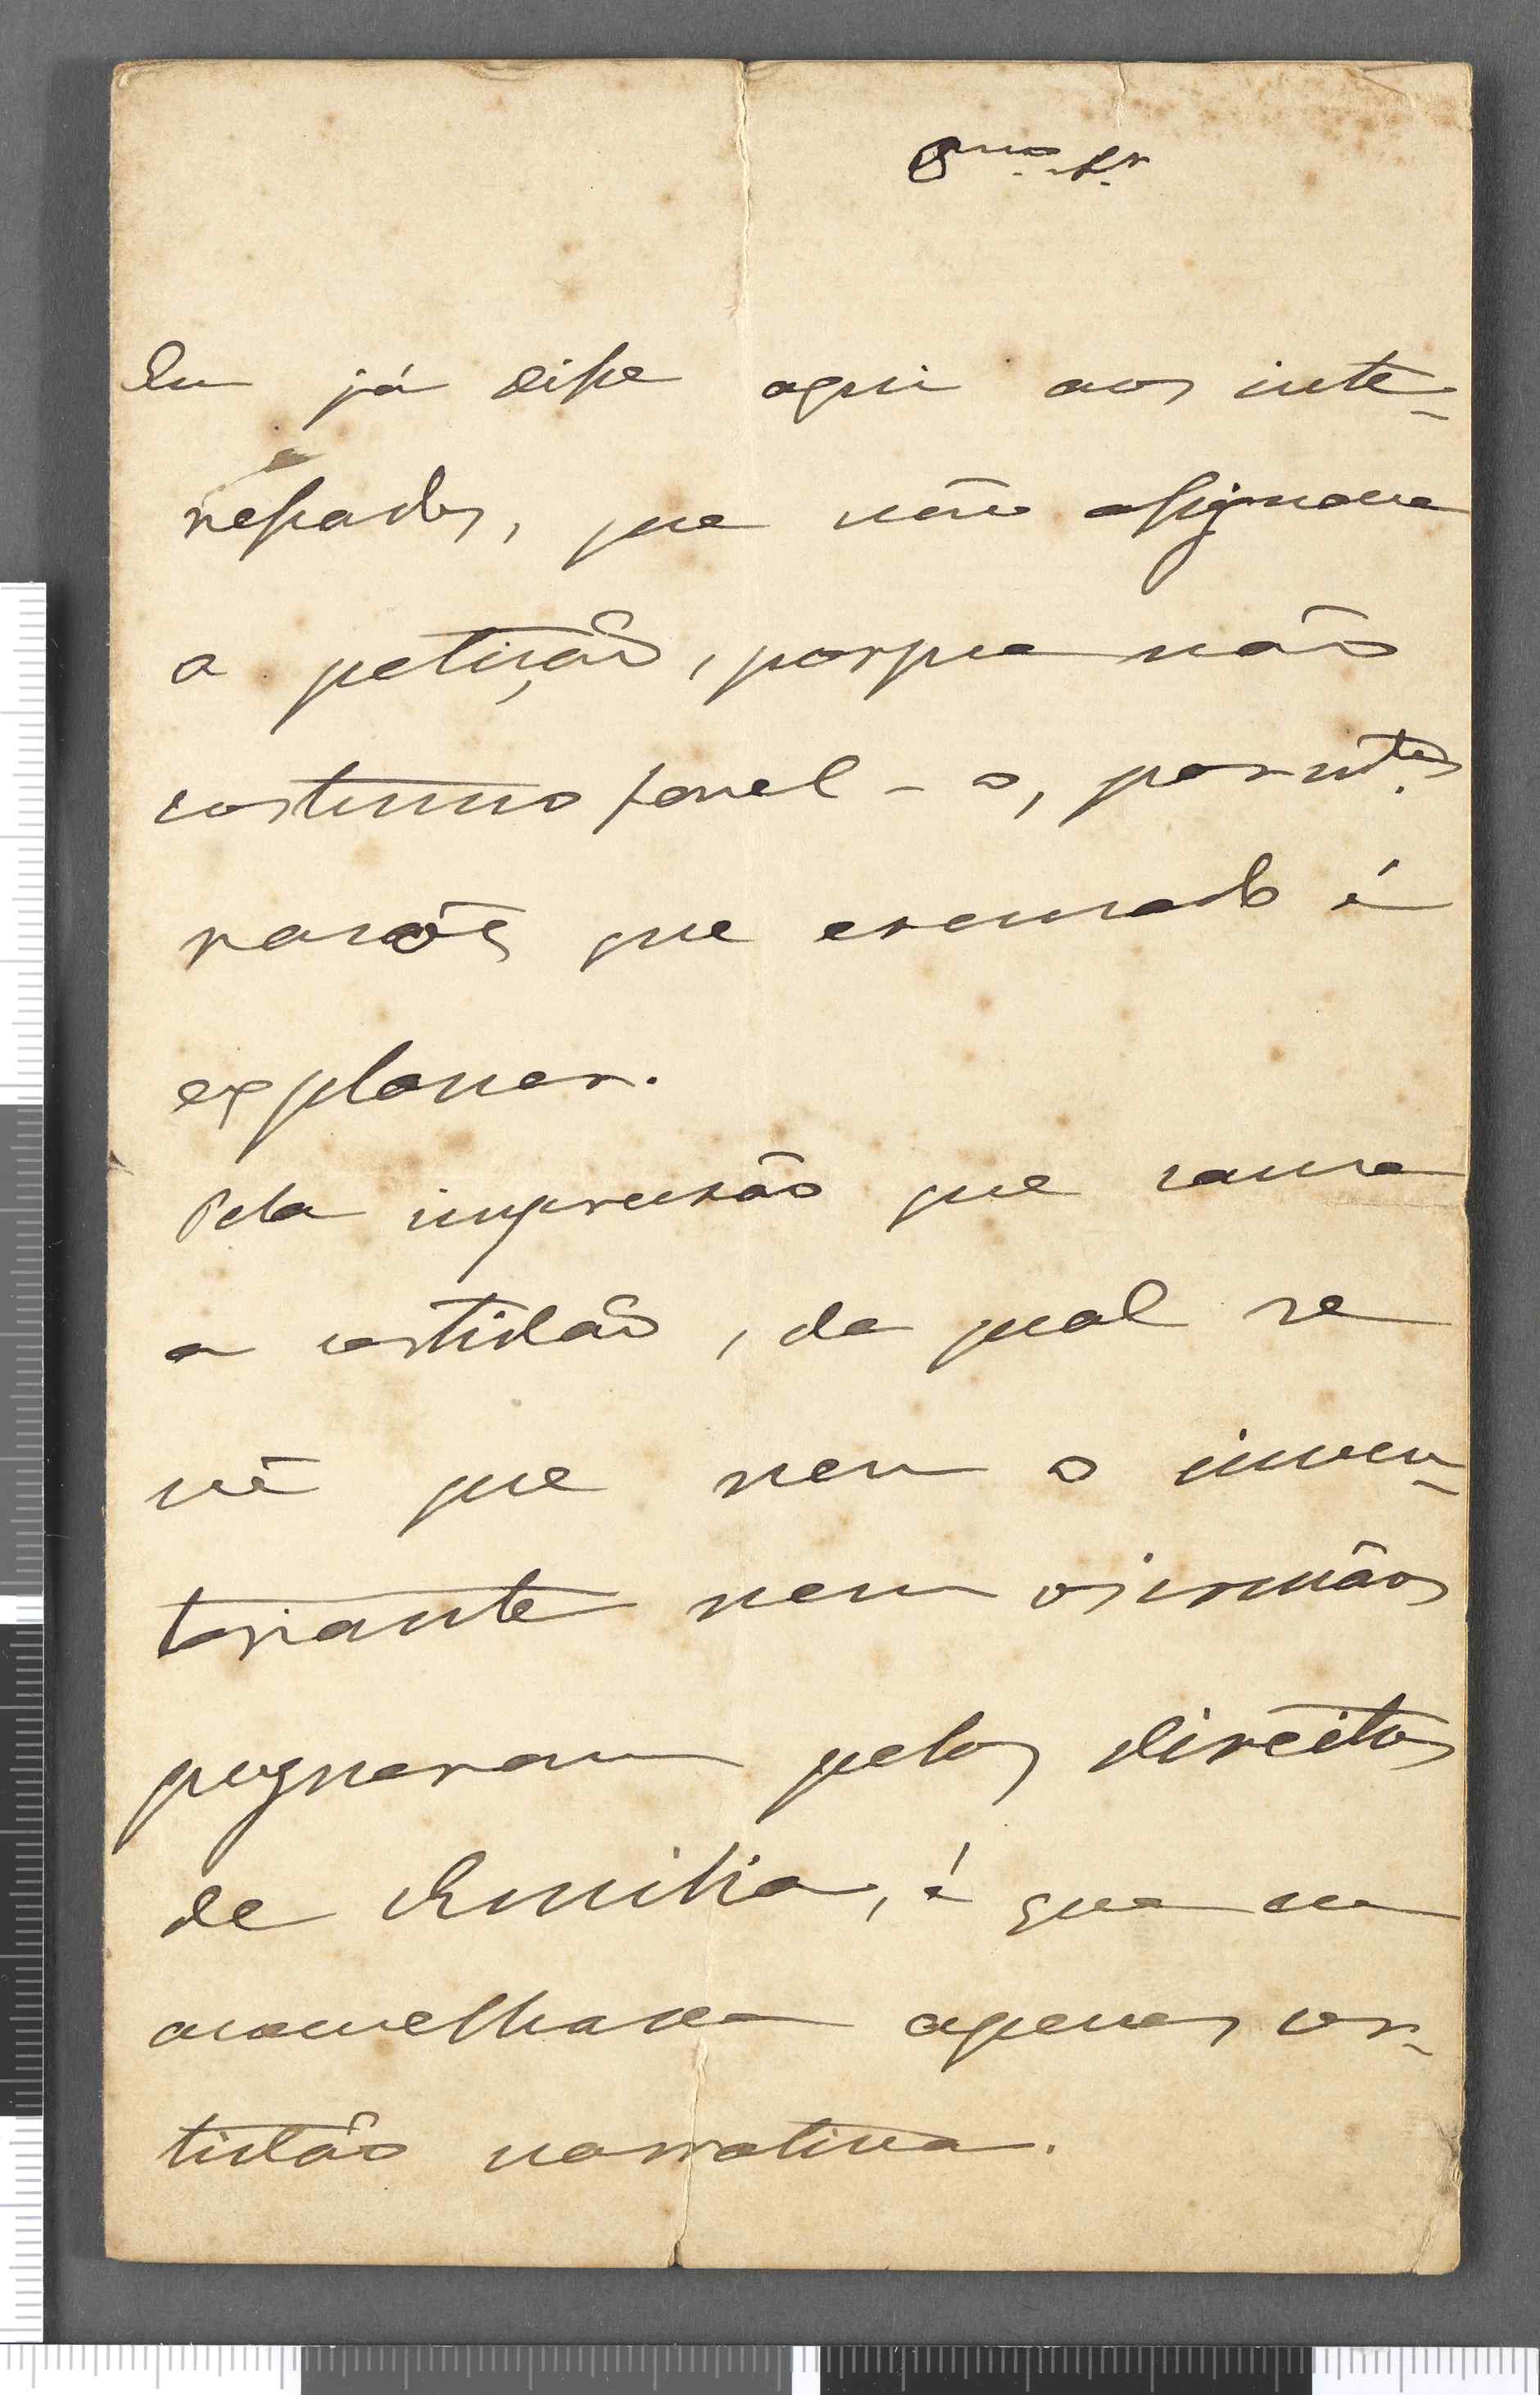 Exmo. Sr.
Eu já disse aqui aos inte-
ressados, que não assignava
a petição, porque não
costumo fazel-o, por mtas.
razões que escusado é
explanar.
Pela impressão que causa
a certidão, da qual se
vê que nem o inven-
tariante nem os irmãos
pugnaram pelos direitos
de Emilia, é que eu
aconselhava apenas cer-
tidão narrativa.